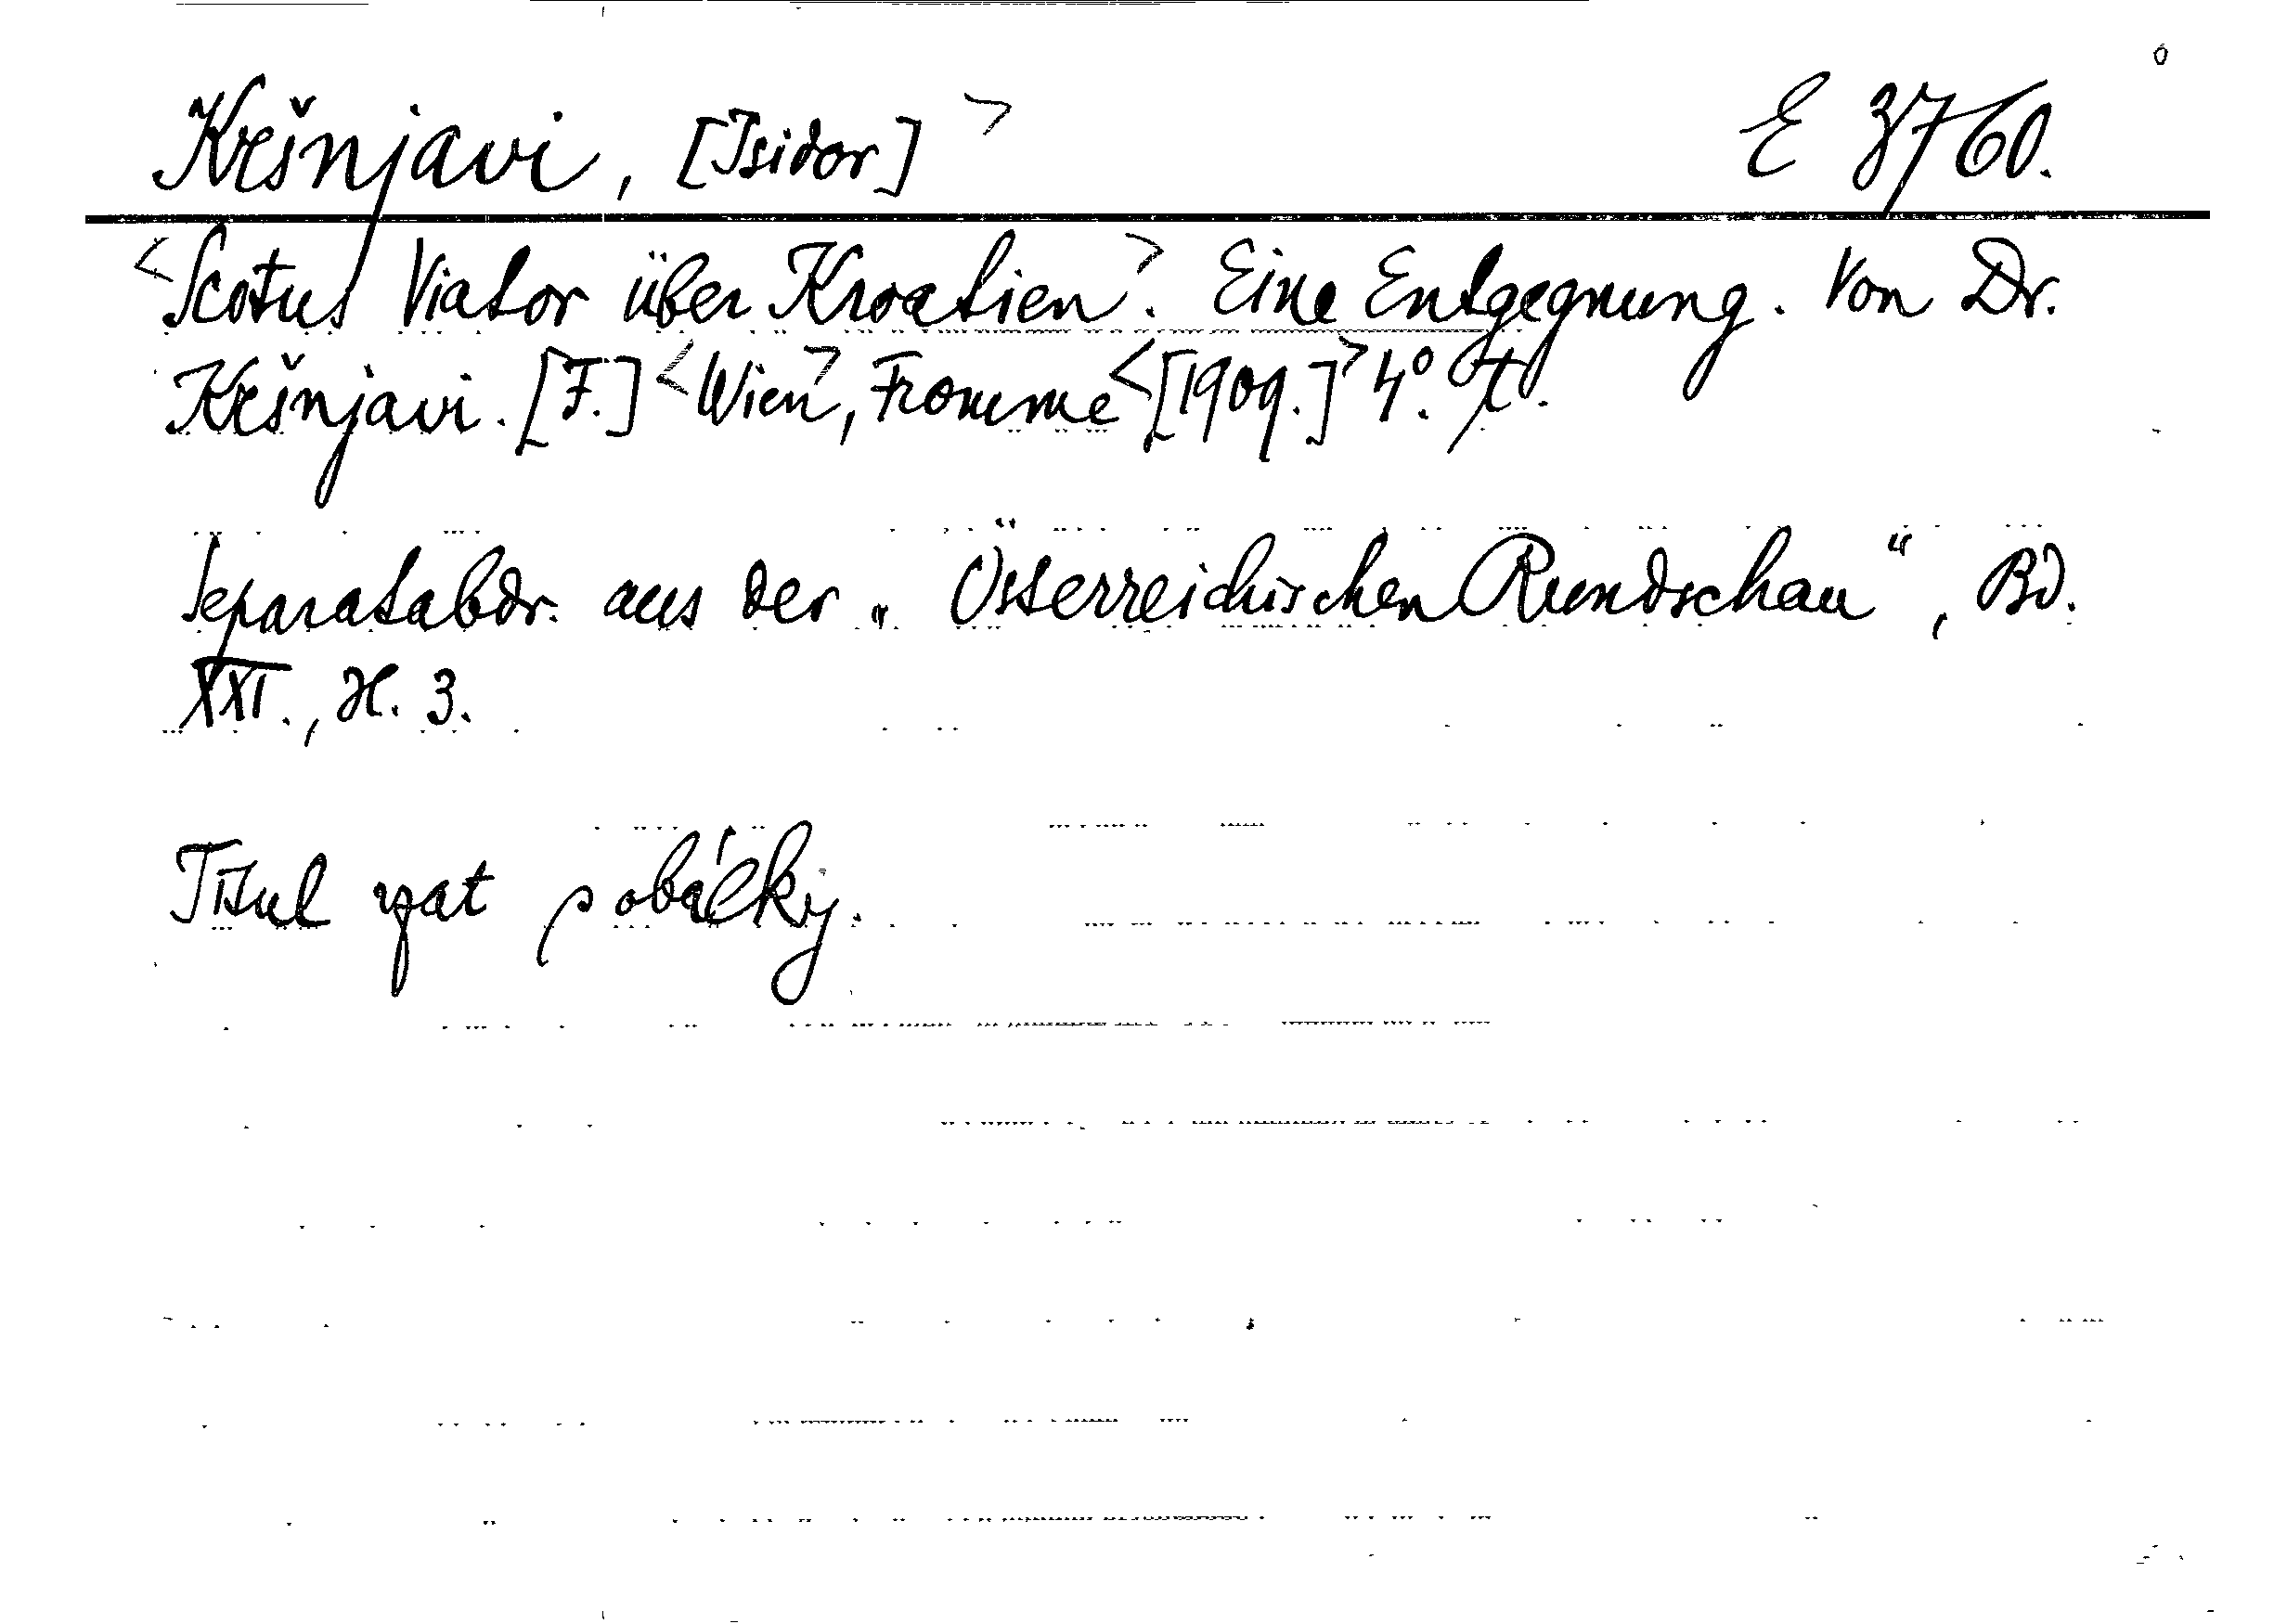 Kršnjavi, [Isidor]> E 3760.
<Scotus Viator über Kroatien>. Eine Entgegnung. Von Dr.
Kršnjavi. [F.] <Wien>, Fromme <[1909.]> 4°.
Separatabdr. aus der „Österreichischen Rundschau“, Bd.
XXI., H. 3.
Titul vzat s obálky.